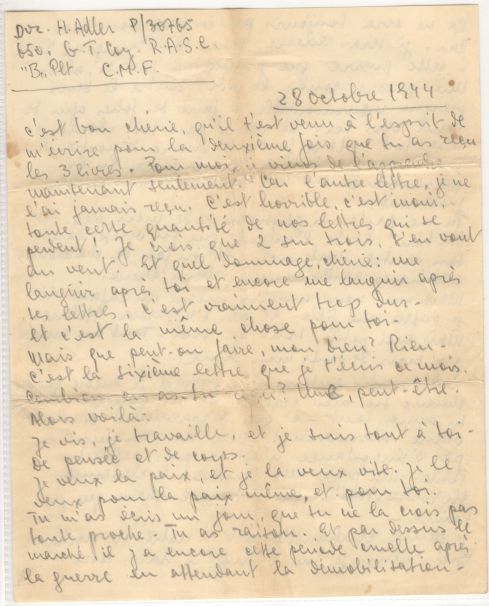 Dvr. H. Adler P/30765
650. G. T. Coy. R.A.S.C
"B" Plt C.M.F.
28 octobre 1944
c'est bon chérie, qu'il t'est venu à l'esprit de
m'écrire pour la deuxième fois que tu as reçu
les 3 livres. Pour moi, je viens de l'apprendre
maintenant seulement. Car l'autre lettre, je ne
l'ai jamais reçu. C'est horrible, c'est
toute cette quantité de nos lettres qui se
perdent! Je crois que 2 sur trois, s'en vont
au vent. Et quel dommage, chérie: me
languir après toi et encore me languir après
tes lettres, c'est vraiment trop dur-
et c'est la même chose pour toi-
Mais que peut-on faire, mon bien? Rien-
c'est la sixième lettre que je t'écris ce mois.
Combien en as-tu reçu? Une, peut-être.
Alors voilà:
Je vis, je travaille, et je suis tout à toi-
de pensée et de corps.
Je veux la paix, et je la veux vite. Je le
veux pour la paix même, et pour toi.
Tu m'as écris un jour, que tu ne la crois pas
toute proche. Tu as raison. Et par dessus le
marché, il y a encore cette periode cruelle après
la guerre en attendant la démobilisation-